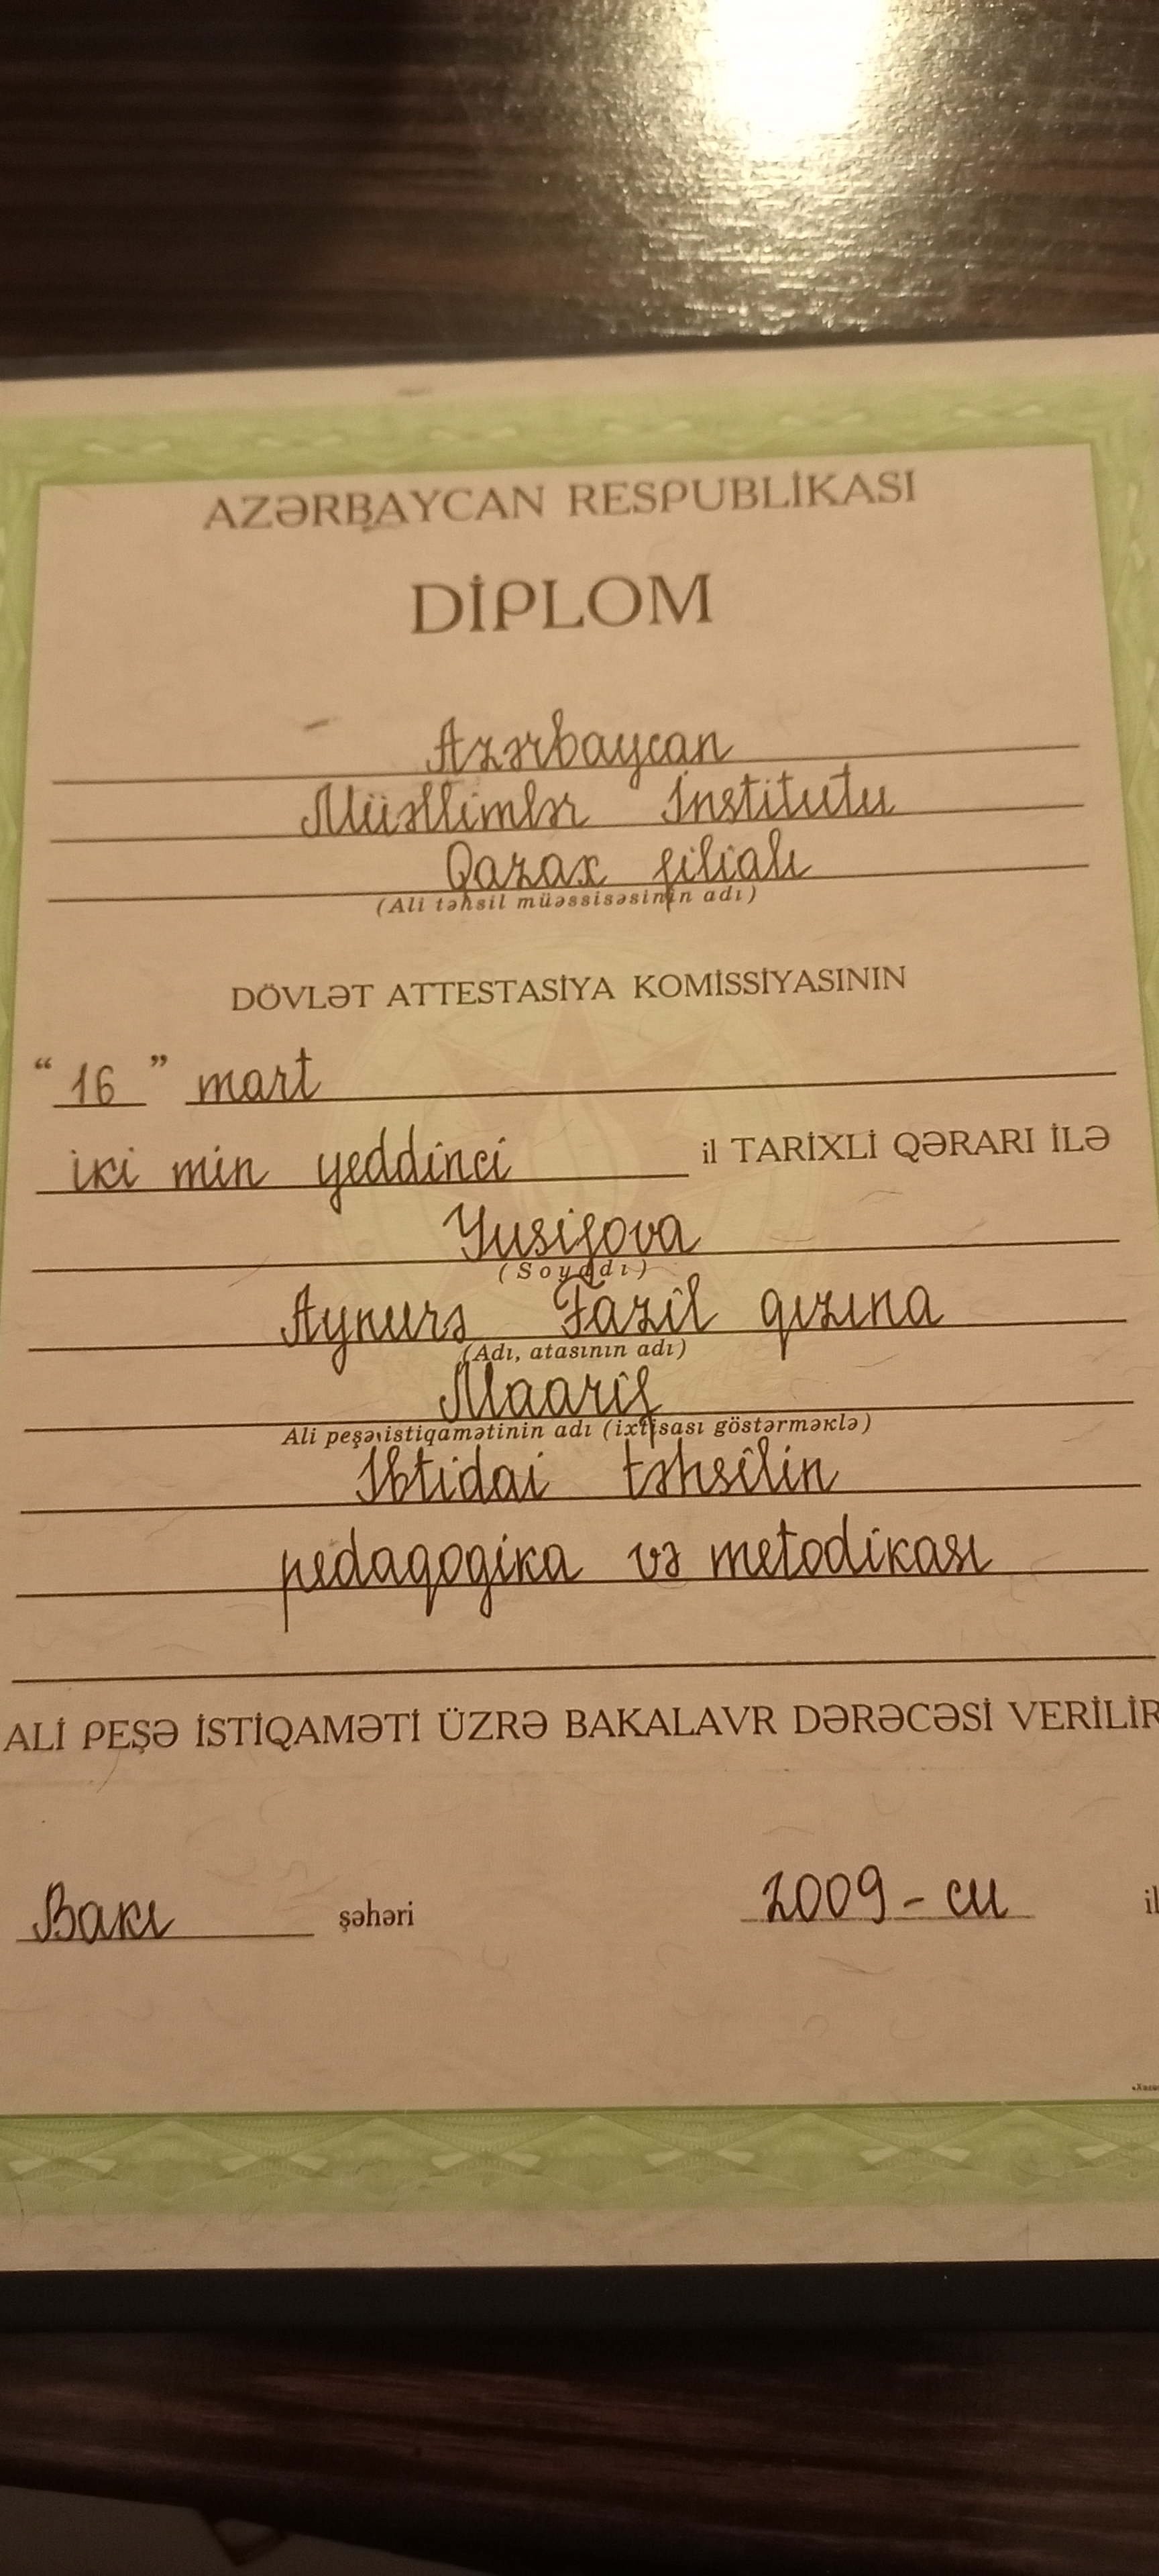 AZƏRBAYCAN RESPUBLİKASI
DİPLOM
Azərbaycan
Müəllimlər İnstitutu
Qazax filialı
(Ali təhsil müəssisəsinin adı)
DÖVLƏT ATTESTASİYA KOMİSSİYASININ
“ 16 ” mart
iki min yeddinci il TARİXLİ QƏRARI İLƏ
Yusifova
(Soyadı)
Aynurə Fazil qızına
(Adı, atasının adı)
Maarif
Ali peşə istiqamətinin adı (ixtisası göstərməklə)
İbtidai təhsilin
pedaqogika və metodikası
ALİ PEŞƏ İSTİQAMƏTİ ÜZRƏ BAKALAVR DƏRƏCƏSİ VERİLİR
Bakı şəhəri 2009-cu il